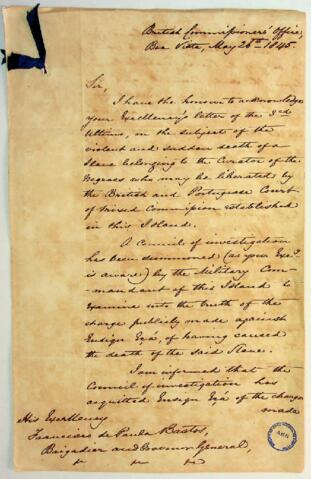 British Commissioners' Office,
Boa Vista, May 26th 1845.
Sir,
I have the honor to acknowledge
your Excellency's letter of the 3rd
Ultimo, on the subject of the
violent and sudden death of a
Slave belonging to the Curator of the
Negroes who may be liberated by
the British and Portuguese Court
of Mixed Commission established
in this Island.
A Council of investigation
has been summoned (as your Excy.
is aware) by the Military Com-
mandant of this Island to
examine into the truth of the
charge publicly made against
Ensign Eça of having caused
the death of the said Slave.
I am informed that the
Council of investigation has
acquitted Ensign Eça of the charge
made
His Excellency
Francisco de Paula Bastos,
Brigadier and Governor General,
AHN